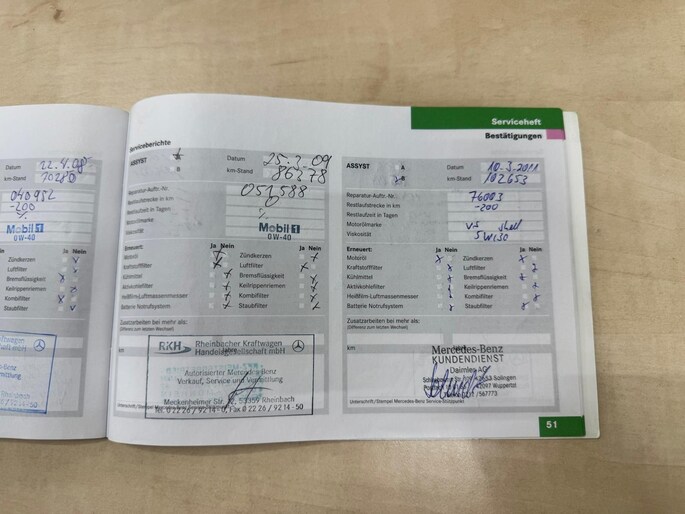 Serviceheft
Bestätigungen
Datum 22.4.08
km-Stand
040952
-200
%
Mobil 1
0W-40
Ja Nein
Zündkerzen
Luftfilter
Bremsflüssigkeit
Keilrippenriemen
Kombifilter
Staubfilter
Serviceberichte
ASSYST
B
Datum 25.2.09
km-Stand 86278
Reparatur-Auftr.-Nr. 051588
Restlaufstrecke in km 0
Restlaufzeit in Tagen %
Motorölmarke Mobil 1
Viskosität 0W-40
Erneuert: Ja Nein Ja Nein
Motoröl Zündkerzen
Kraftstofffilter Luftfilter
Kühlmittel Bremsflüssigkeit
Aktivkohlefilter Keilrippenriemen
Heißfilm-Luftmassenmesser Kombifilter
Batterie Notrufsystem Staubfilter
Zusatzarbeiten bei mehr als:
(Differenz zum letzten Wechsel)
km Jahre
RKH Rheinbacher Kraftwagen
Handelsgesellschaft mbH
Autorisierter Mercedes-Benz
Verkauf, Service und Vermittlung
Meckenheimer Str. 53359 Rheinbach
Tel. 0 22 26 / 92 14 - 0, Fax 0 22 26 / 92 14 - 50
ASSYST A
B
Datum 10.3.2011
km-Stand 102653
Reparatur-Auftr.-Nr. 76003
Restlaufstrecke in km -200
Restlaufzeit in Tagen
Motorölmarke Shell
Viskosität 5W30
Erneuert: Ja Nein Ja Nein
Motoröl Zündkerzen
Kraftstofffilter Luftfilter
Kühlmittel Bremsflüssigkeit
Aktivkohlefilter Keilrippenriemen
Heißfilm-Luftmassenmesser Kombifilter
Batterie Notrufsystem Staubfilter
Zusatzarbeiten bei mehr als:
(Differenz zum letzten Wechsel)
km Jahre
Mercedes-Benz
KUNDENDIENST
Daimler AG
42653 Solingen
42097 Wuppertal
/567773
Unterschrift/Stempel Mercedes-Benz Servicestützpunkt
51